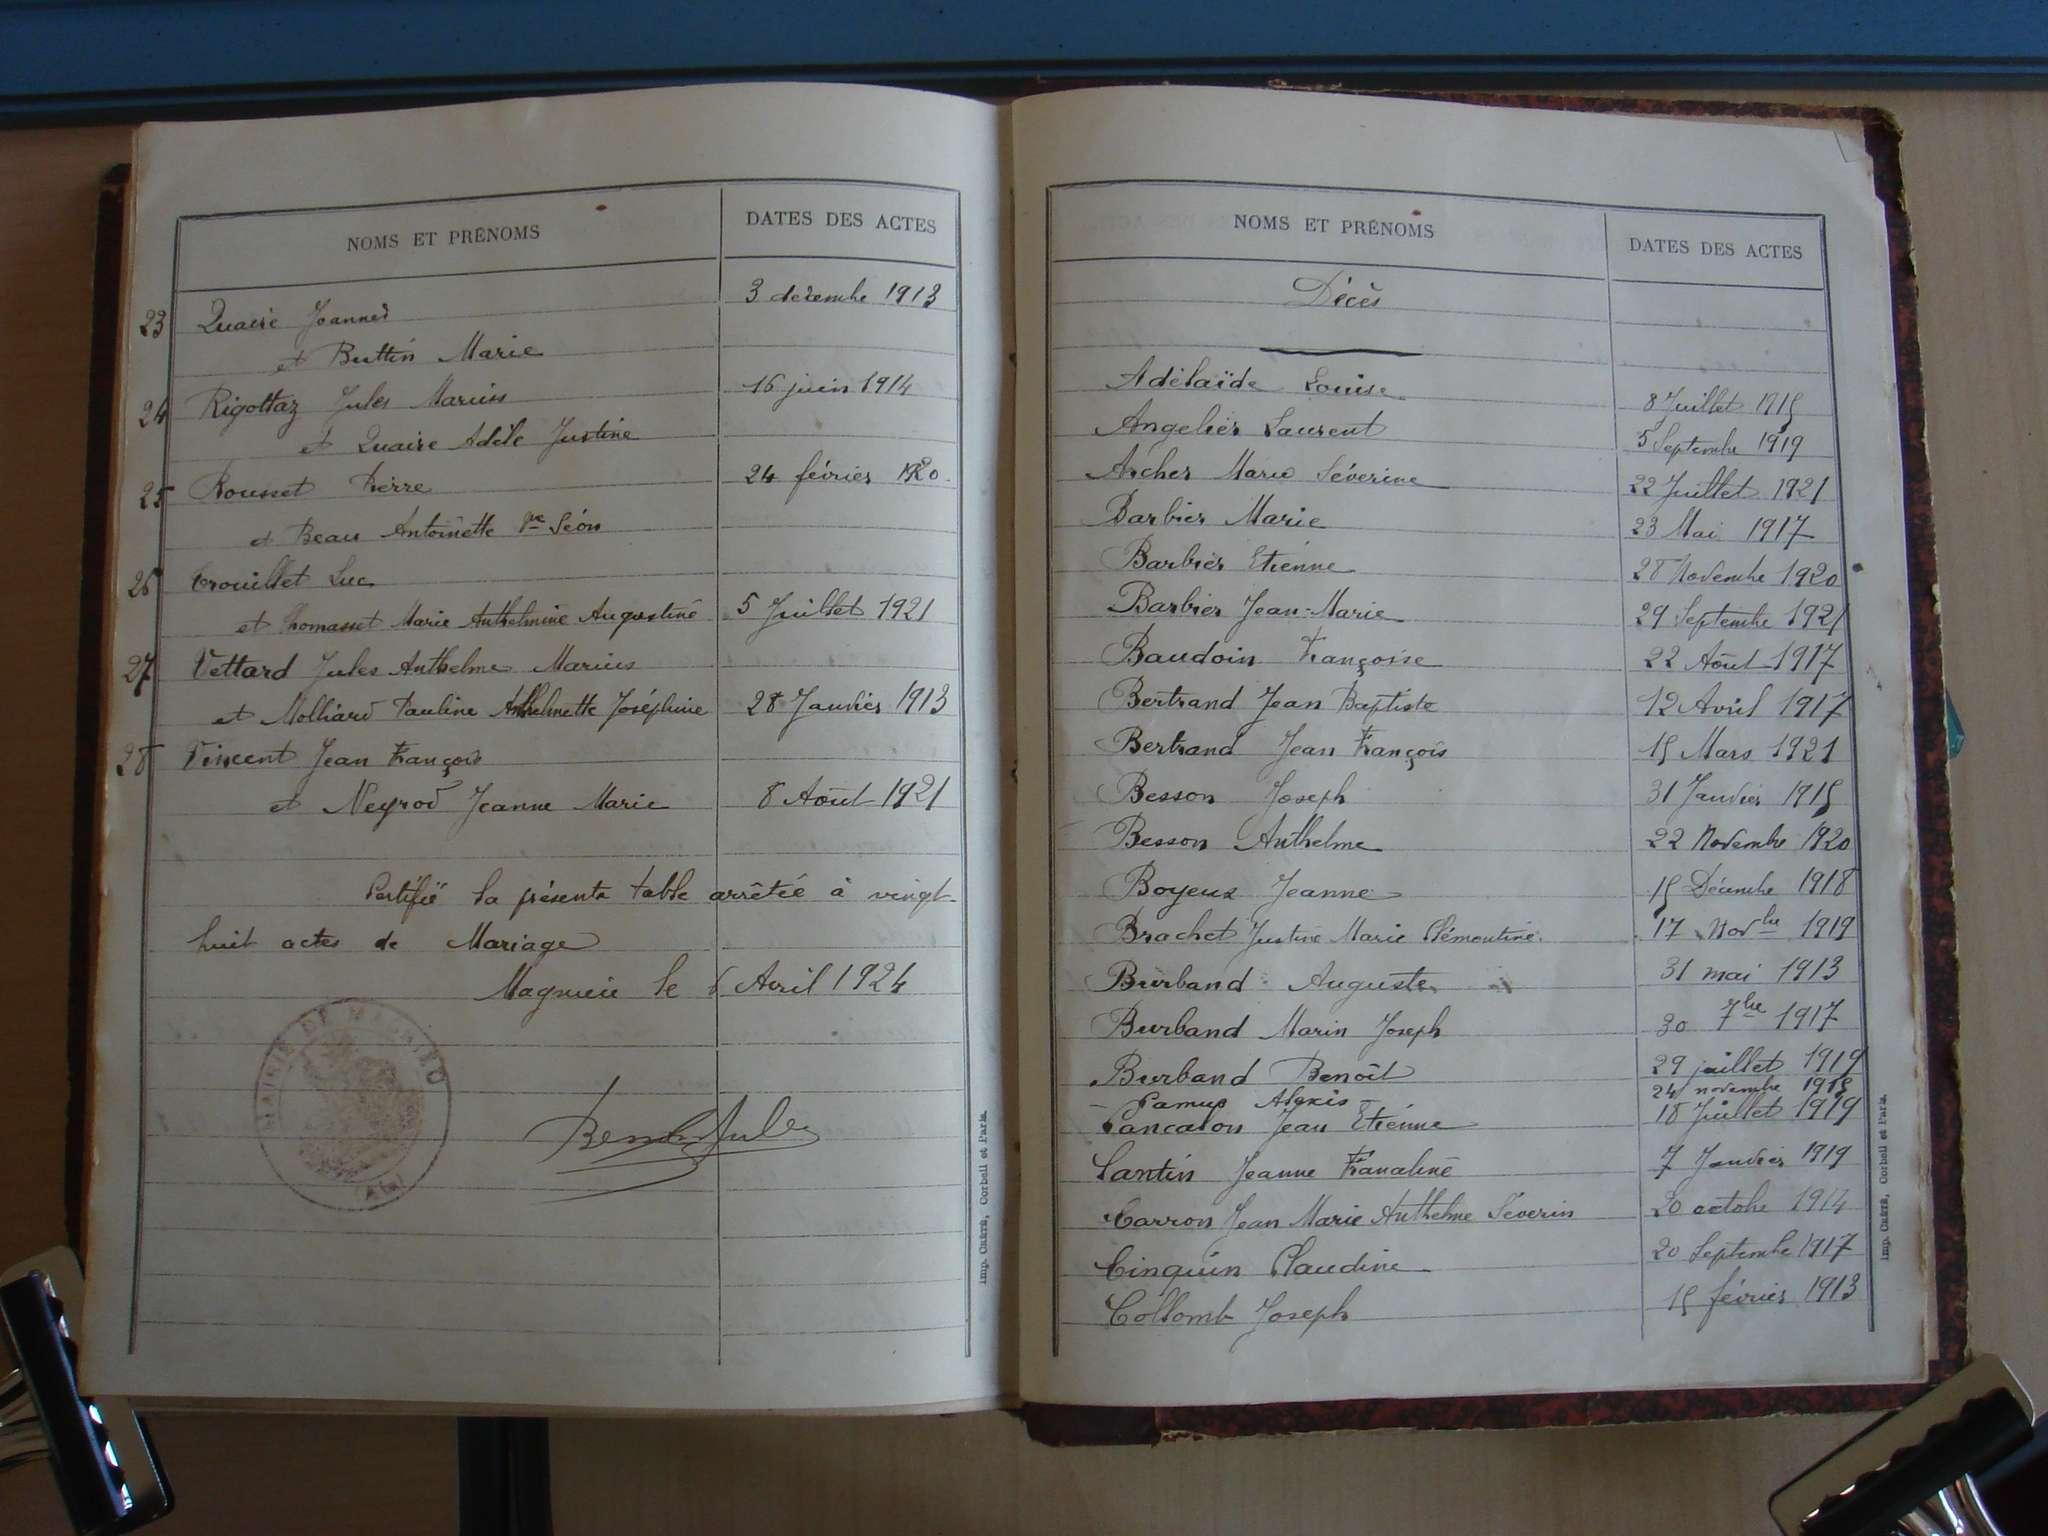 NOMS ET PRÉNOMS DATES DES ACTES
23 Quaire Joannes 3 décembre 1913
et Buttin Marie
24 Rigottaz Jules Marius 16 juin 1914
et Quaire Adèle Justine
25 Rousset Pierre 24 février 1920
et Beau Antoinette Vve Séon
26 Trouillet Luc
et Thomasset Marie Anthelmine Augustine 5 Juillet 1921
27 Vettard Jules Anthelme Marius
et Molliard Pauline Anthelmette Joséphine 28 Janvier 1913
28 Vincent Jean François
et Neyrod Jeanne Marie 8 Août 1921
Certifié la présente table arrêtée à vingt-
huit actes de Mariage
Magnieu le 6 Avril 1924
MAIRIE DE MAGNIEU
(Ain)
Imp. CRÉTÉ, Corbeil et Paris.
NOMS ET PRÉNOMS DATES DES ACTES
Décès
Adélaïde Louise 8 Juillet 1915
Angelier Laurent 5 Septembre 1919
Archer Marie Séverine 22 Juillet 1921
Barbier Marie 23 Mai 1917
Barbier Etienne 28 Novembre 1920
Barbier Jean-Marie 29 Septembre 1921
Baudoin Françoise 22 Août 1917
Bertrand Jean Baptiste 12 Avril 1917
Bertrand Jean François 15 Mars 1921
Besson Joseph 31 Janvier 1915
Besson Anthelme 22 Novembre 1920
Boyeux Jeanne 15 Décembre 1918
Brachet Justine Marie Clémentine 17 Novbre 1919
Burband Auguste 31 mai 1913
Burband Marin Joseph 30 7bre 1917
Burband Benoît 29 juillet 1919
Camus Alexis 24 novembre 1915
Cancalon Jean Etienne 18 Juillet 1919
Cantin Jeanne 7 Janvier 1919
Carron Jean Marie Anthelme Séverin 20 octobre 1914
Cinquin Claudine 20 Septembre 1917
Collomb Joseph 15 février 1913
Imp. CRÉTÉ, Corbeil et Paris.